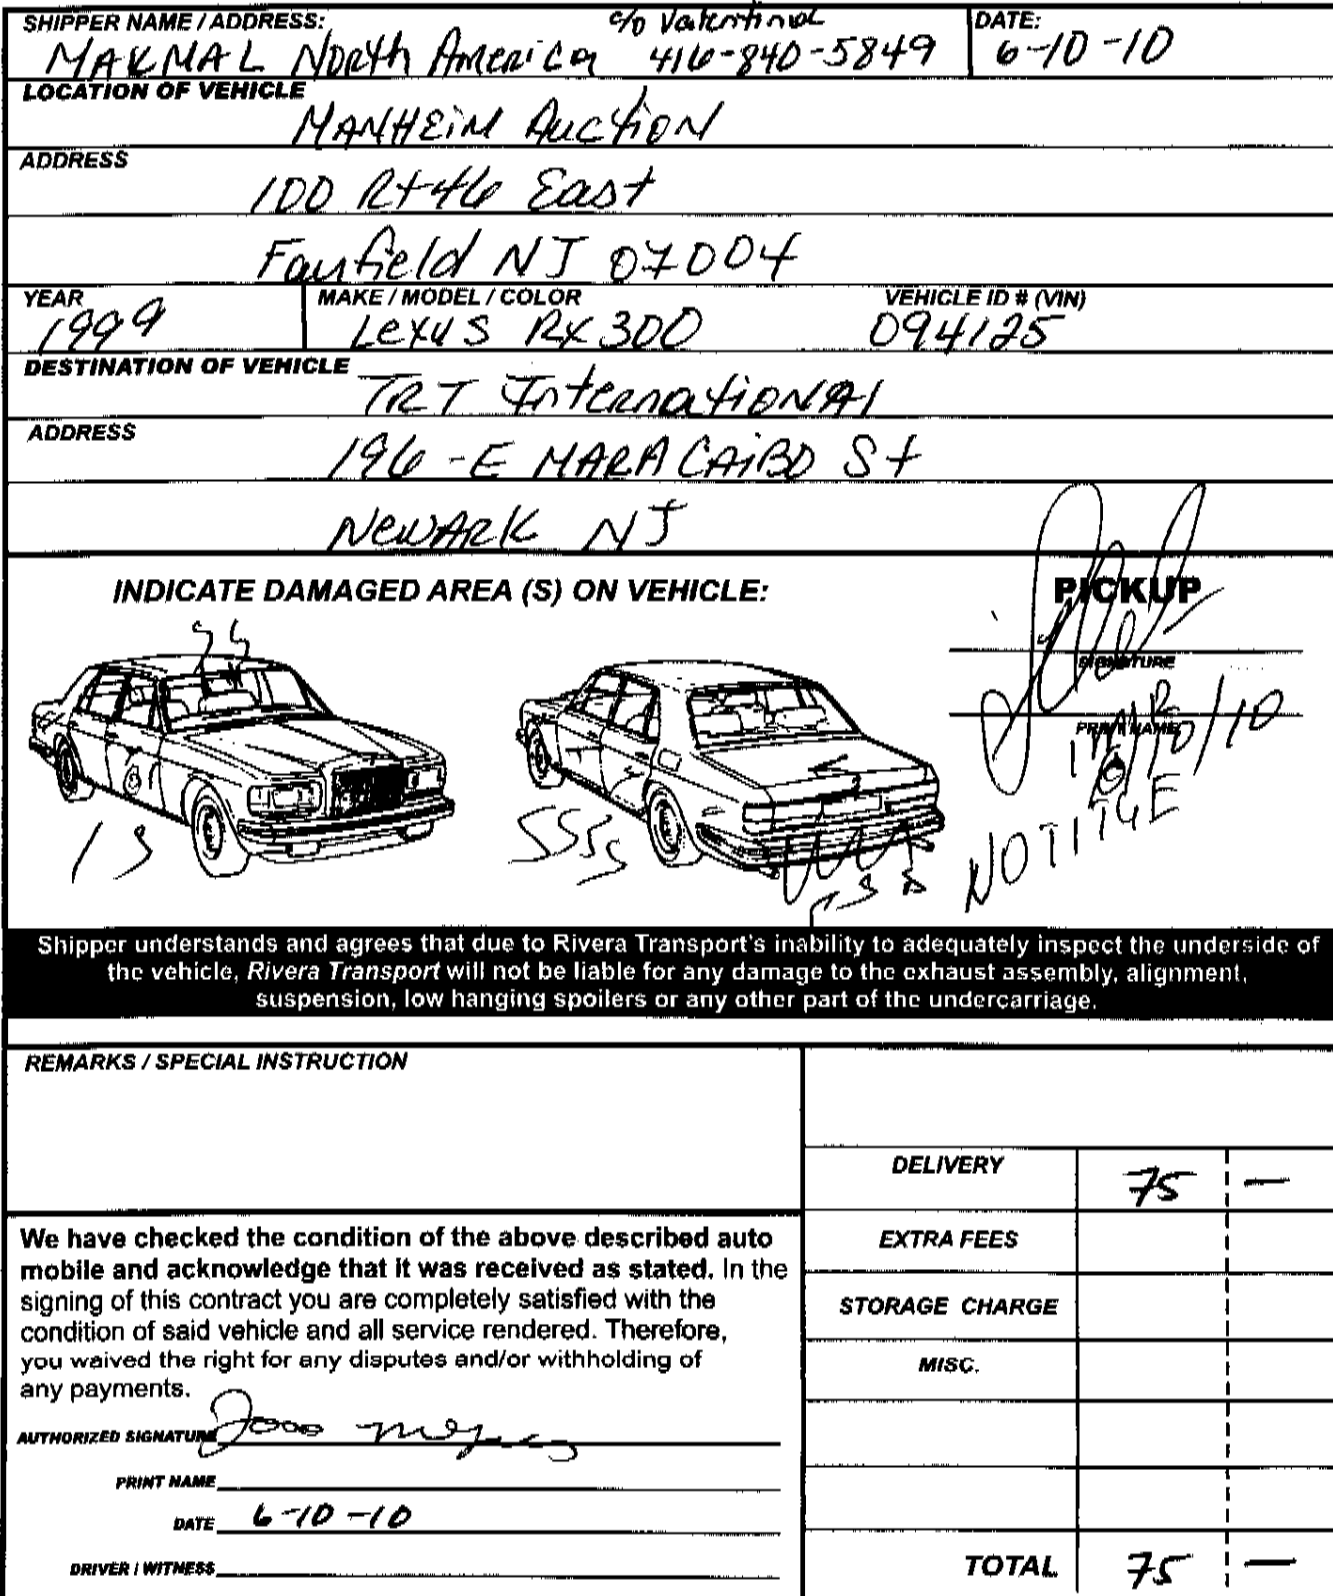 SHIPPER NAME / ADDRESS: c/o DATE:
MAKMAL North America 416-840-5849 6-10-10
LOCATION OF VEHICLE
MANHEIM AUCTION
ADDRESS
100 Rt 46 East
Fairfield NJ 07004
YEAR MAKE / MODEL / COLOR VEHICLE ID # (VIN)
1999 Lexus RX 300 094125
DESTINATION OF VEHICLE
TRT InternationAl
ADDRESS
196-E MARACAIBO St
NewARK NJ
INDICATE DAMAGED AREA (S) ON VEHICLE:
PICKUP
SIGNATURE
PRINT NAME
Shipper understands and agrees that due to Rivera Transport's inability to adequately inspect the underside of
the vehicle, Rivera Transport will not be liable for any damage to the exhaust assembly, alignment,
suspension, low hanging spoilers or any other part of the undercarriage.
REMARKS / SPECIAL INSTRUCTION
DELIVERY 75 —
EXTRA FEES
STORAGE CHARGE
MISC.
TOTAL 75 —
We have checked the condition of the above described auto
mobile and acknowledge that it was received as stated. In the
signing of this contract you are completely satisfied with the
condition of said vehicle and all service rendered. Therefore,
you waived the right for any disputes and/or withholding of
any payments.
AUTHORIZED SIGNATURE
PRINT NAME
DATE 6-10-10
DRIVER / WITNESS